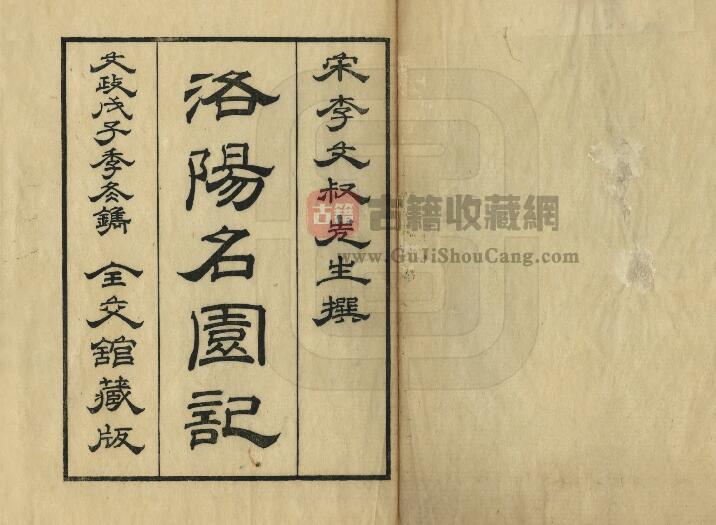 宋李文叔先生撰
洛陽名園記
文政戊子季冬鐫 全交舘藏版
古籍
古籍收藏網
www.GuJiShouCang.com